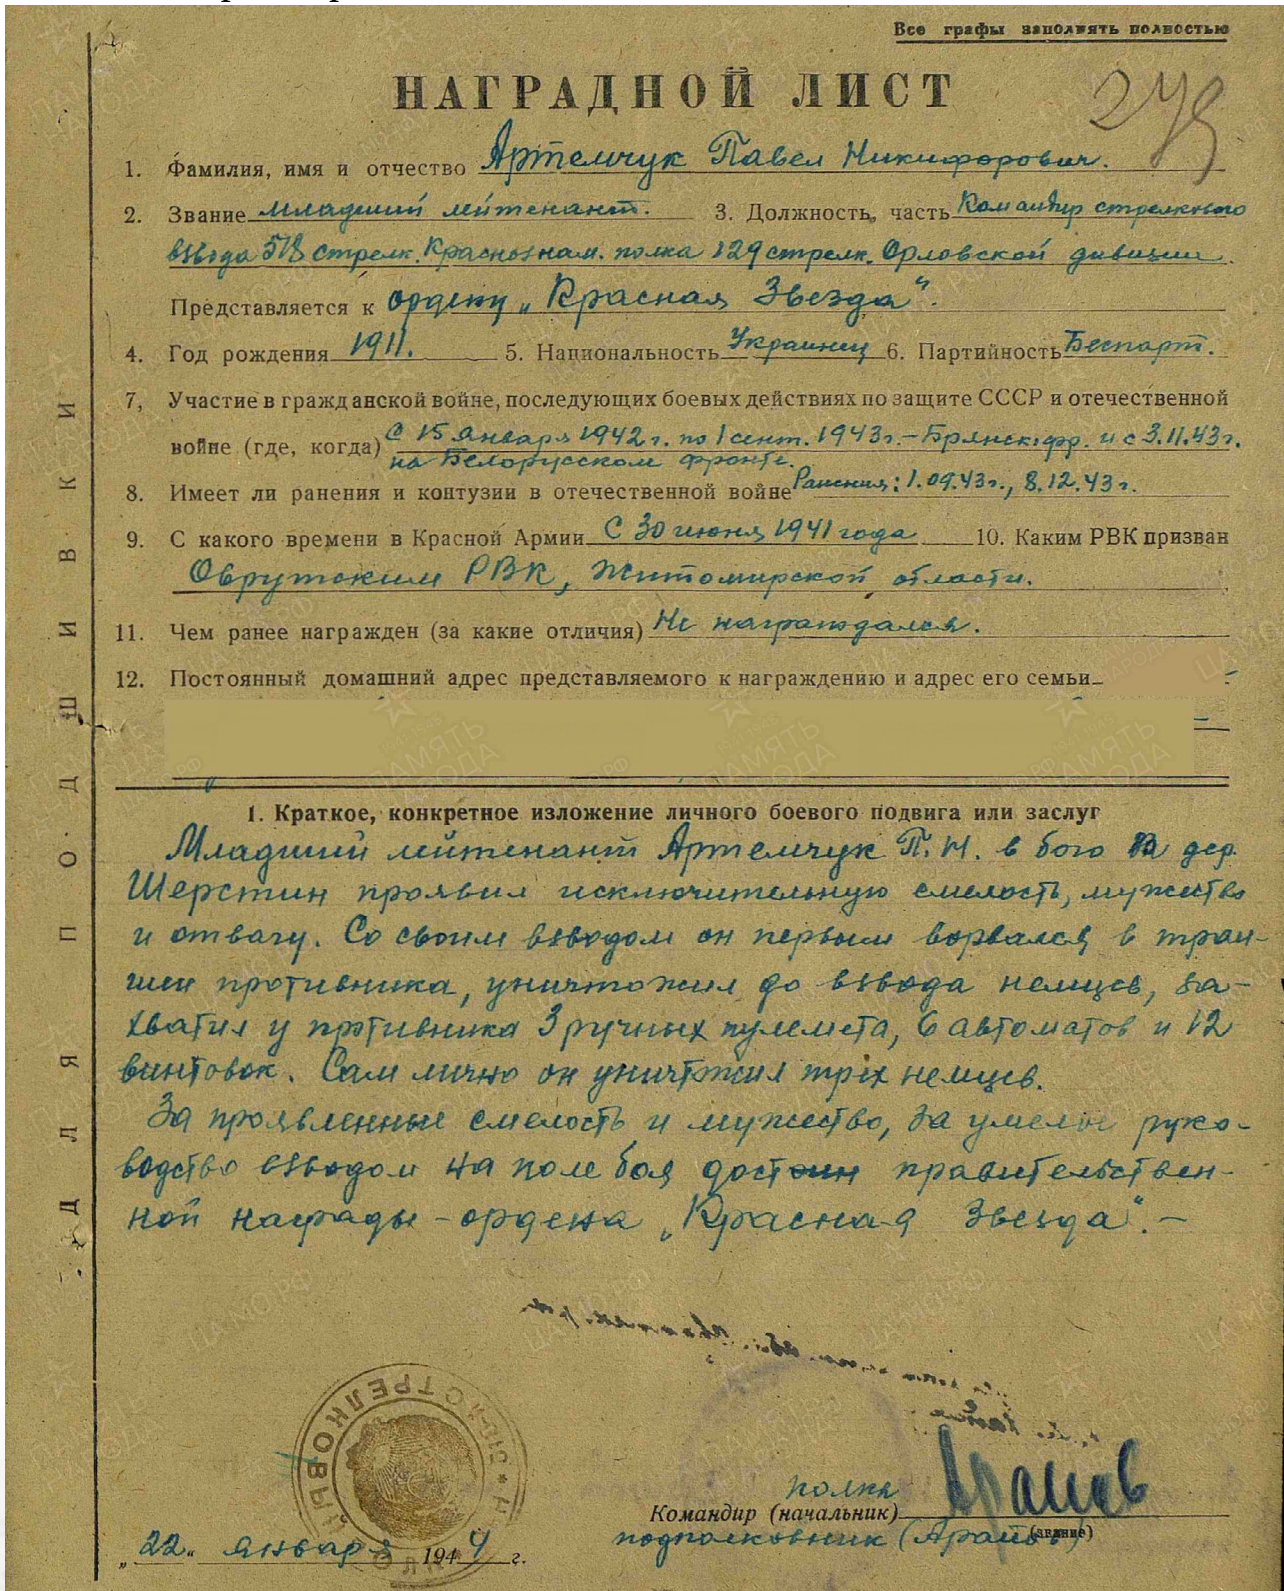 Все графы заполнять полностью
НАГРАДНОЙ ЛИСТ
279
1. Фамилия, имя и отчество Артемчук Павел Никифорович.
2. Звание младший лейтенант. 3. Должность, часть Командир стрелкового
взвода 518 стрелк. Краснознам. полка 129 стрелк. Орловской дивизии.
Представляется к ордену „Красная Звезда".
4. Год рождения 1911. 5. Национальность Украинец 6. Партийность Беспарт.
7, Участие в гражданской войне, последующих боевых действиях по защите СССР и отечественной
войне (где, когда) С 15 января 1942 г. по 1 сент. 1943 г. – Брянск. фр. и с 3.11.43 г.
на Белорусском фронте.
8. Имеет ли ранения и контузии в отечественной войне Ранения: 1.09.43 г., 8.12.43 г.
9. С какого времени в Красной Армии С 30 июня 1941 года 10. Каким РВК призван
Овручским РВК, Житомирской области.
11. Чем ранее награжден (за какие отличия) Не награждался.
12. Постоянный домашний адрес представляемого к награждению и адрес его семьи
ДЛЯ ПОДШИВКИ
1. Краткое, конкретное изложение личного боевого подвига или заслуг
Младший лейтенант Артемчук П. Н. в бою за дер.
Шерстин проявил исключительную смелость, мужество
и отвагу. Со своим взводом он первым ворвался в тран-
шеи противника, уничтожил до взвода немцев, за-
хватил у противника 3 ручных пулемета, 6 автоматов и 12
винтовок. Сам лично он уничтожил трёх немцев.
За проявленные смелость и мужество, за умелое руко-
водство взводом на поле боя достоин правительствен-
ной награды – ордена „Красная Звезда". –
полка
Командир (начальник)
подполковник (Арапов)
(звание)
„22" января 1944 г.